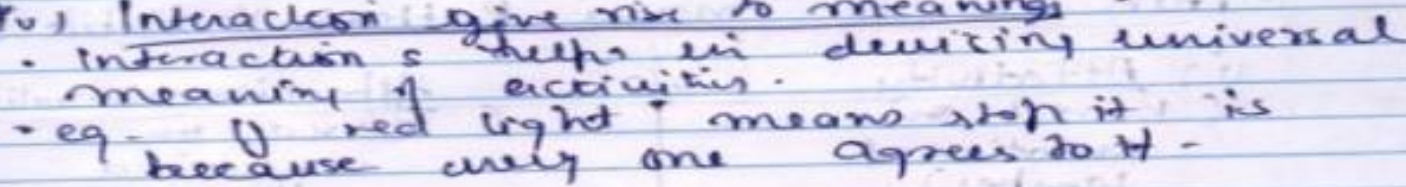 iv) Interaction give rise to meanings
• interaction s helps in deriving universal
meaning of activities.
• eg - If red light means stop it is
because every one agrees to it -